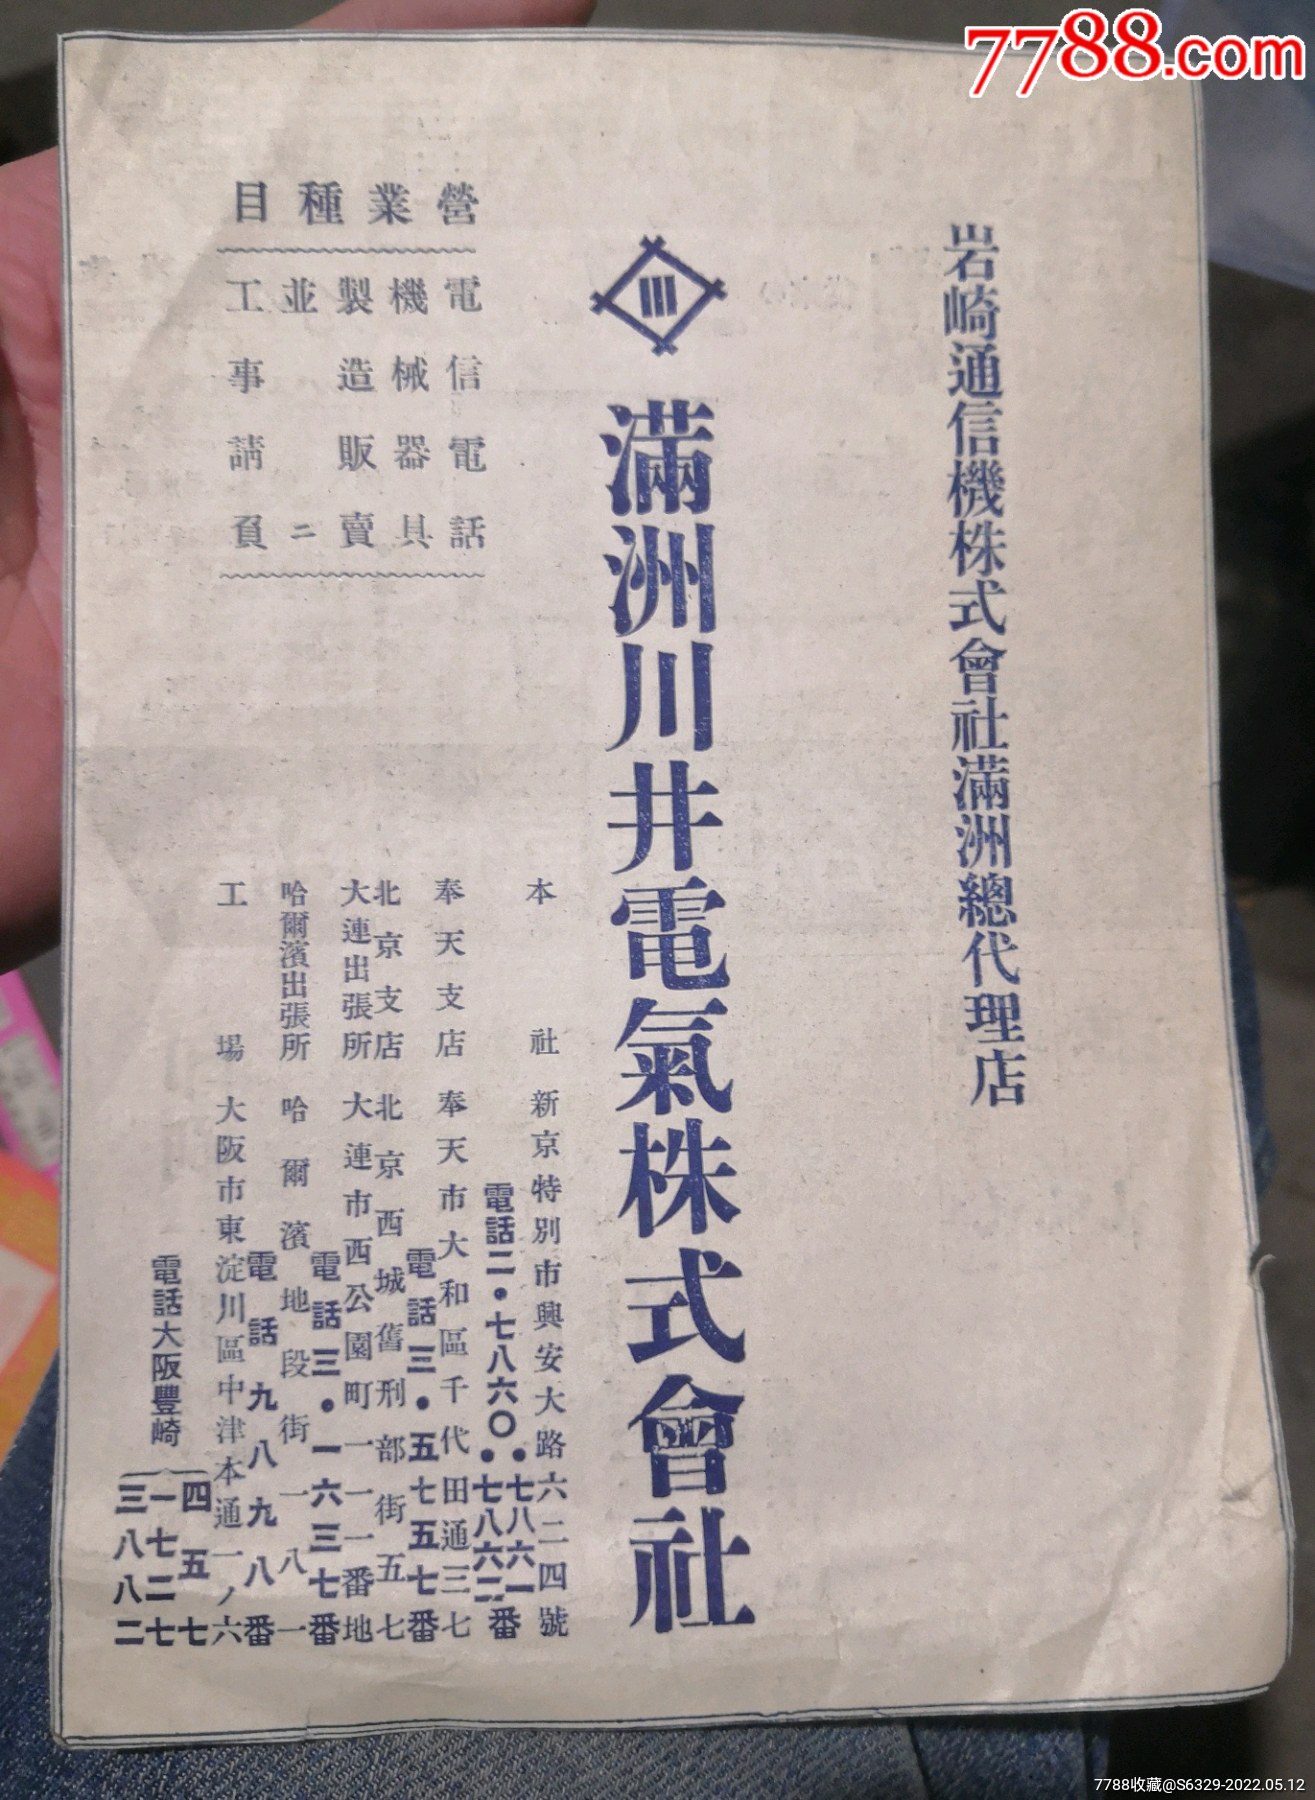 7788.com
岩崎通信機株式會社滿洲總代理店
滿洲川井電氣株式會社
營業種目
電信電話
機械器具
製造販賣
並ニ
工事請負
本社 新京特別市興安大路六二四號
電話二・七八六〇・七八六一・七八六二番
奉天支店 奉天市大和區千代田通三七
電話三・五七五七番
北京支店 北京西城舊刑部街五七
大連出張所 大連市西公園町一一一番地
電話三・一六三七番
哈爾濱出張所 哈爾濱地段街一八一
電話九八九八番
工場 大阪市東淀川區中津本通一ノ六
電話大阪豐崎 四五七 一七二七 三八八二
7788收藏@S6329-2022.05.12